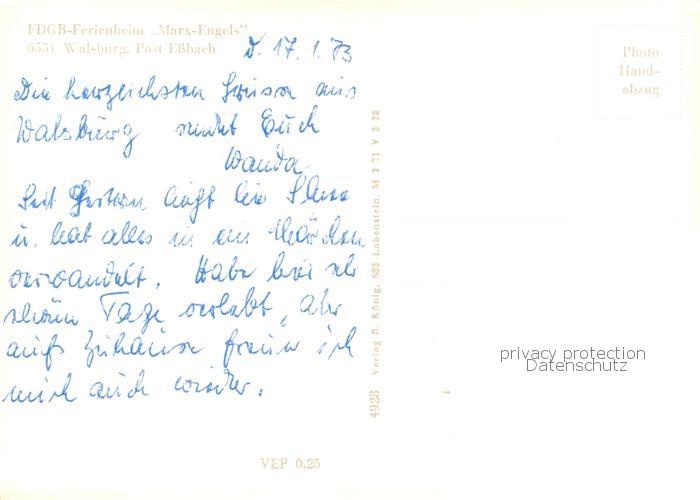 FDGB-Ferienheim „Marx-Engels"
6551 Walsburg, Post Eßbach
d. 17.1.73
Die herzlichsten Grüsse aus
Walsburg sendet Euch
Wanda
Seit Gestern liegt hier Schnee
u. hat alles in ein Märchen
verwandelt. Habe hier sehr
schöne Tage verlebt, aber
aufs Zuhause freue ich
mich auch wieder.
Photo
Hand-
abzug
4928 Verlag D. König, 685 Lobenstein. M 2 71 V
VEP 0,25
privacy protection
Datenschutz